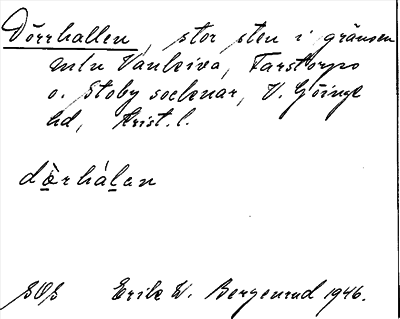 Dörrhallen, stor sten i gränsen
mln Vankiva, Farstorps
o. Stoby socknar, V. Göinge
hd, Krist. l.
dœ̀rhálen
SOS Erik W. Bergenrud 1946.